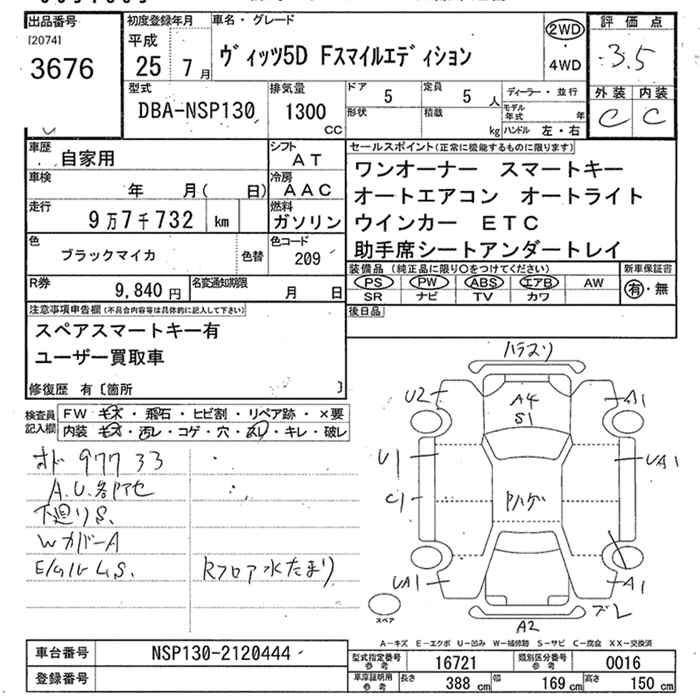 出品番号
[2074]
3676
初度登録年月
平成
25 7月
車名・グレード
ヴィッツ5D Fスマイルエディション
2WD
・
4WD
評価点
3.5
外装 内装
C C
型式
DBA-NSP130
排気量
1300
CC
ドア 5
定員 5 人
形状
積載 kg
ディーラー・並行
モデル年式 年
ハンドル 左・右
車歴
自家用
シフト
AT
車検
年 月( 日)
冷房
AAC
走行
9万7千732 km
燃料
ガソリン
色
ブラックマイカ
色替
色コード
209
R券
9,840 円
名変通知期限
月 日
セールスポイント(正常に機能するものに限ります)
ワンオーナー スマートキー
オートエアコン オートライト
ウインカー ETC
助手席シートアンダートレイ
装備品(純正品に限り○をつけてください)
新車保証書
PS PW ABS エアB AW
SR ナビ TV カワ
有・無
後日品
注意事項申告欄(不具合内容等は具体的に記入して下さい)
スペアスマートキー有
ユーザー買取車
修復歴 有〔箇所 〕
検査員
記入欄
FW キズ・飛石・ヒビ割・リペア跡・×要
内装 キズ・汚レ・コゲ・穴・スレ・キレ・破レ
オド 97733
A.U.各アセ
下廻りS.
Wカバ-A
Rフロア水たまり
ハラスリ
U2
A4
S1
A1
U1
UA1
C1
Pハゲ
UA1
A1
A2
ズレ
スペア
A-キズ E-エクボ U-凹み W-補修跡 S-サビ C-腐食 XX-交換済
車台番号
NSP130-2120444
登録番号
型式指定番号
参考
16721
類別区分番号
参考
0016
車庫証明用
参考
長さ 388 cm 幅 169 cm 高さ 150 cm